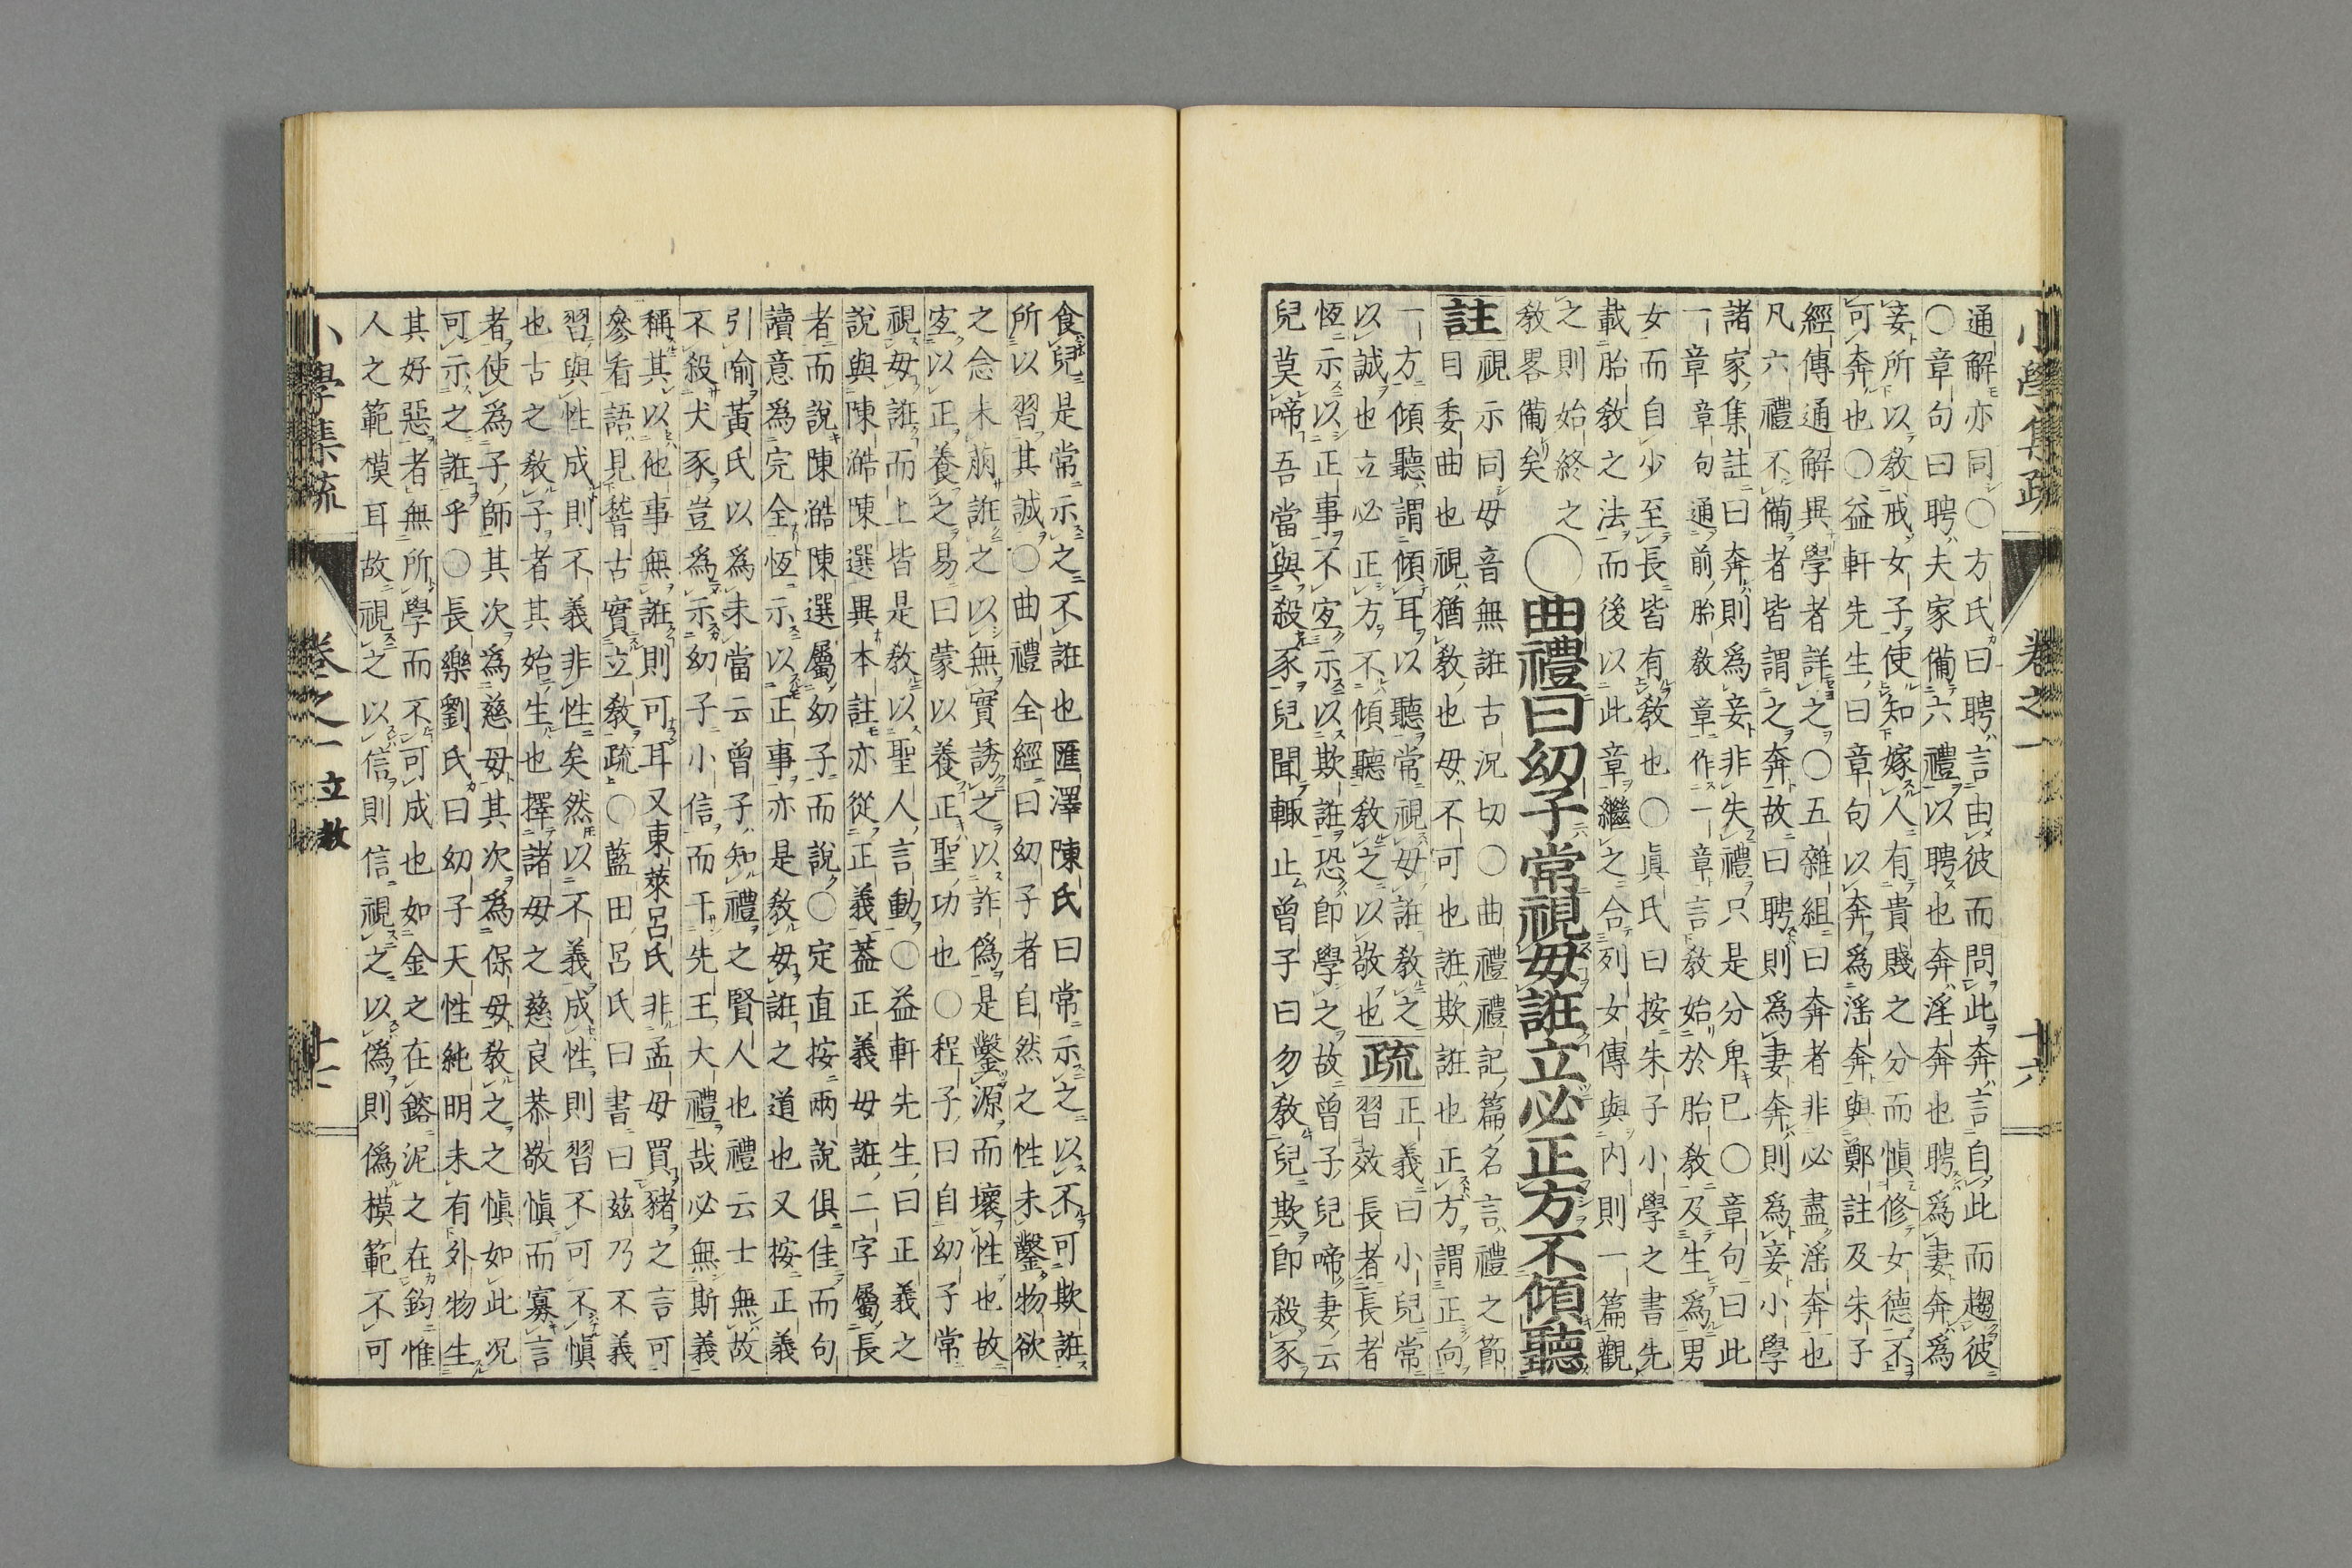 小學集疏 卷之一 十六
通解亦同○方氏曰聘言由彼而問此奔言自此而趨彼
○章句曰聘夫家備六禮以聘也奔淫奔也聘爲妻奔爲
妾所以教戒女子使知嫁人有貴賤之分而愼修女德不
可奔也○益軒先生曰章句以奔爲淫奔與鄭註及朱子
經傳通解異學者詳之○五雜組曰奔者非必盡淫奔也
凡六禮不備者皆謂之奔故曰聘則爲妻奔則爲妾小學
諸家集註曰奔則爲妾非失禮只是分卑已○章句曰此
一章章句通前胎教章作一章言教始於胎教及生爲男
女而自少至長皆有教也○眞氏曰按朱子小學之書先
載胎教之法而後以此章繼之合列女傳與内則一篇觀
之則始終之
教畧備矣
○曲禮曰幼子常視毋誑立必正方不傾聽
註
視示同毋音無誑古況切○曲禮禮記篇名言禮之節
目委曲也視猶教也毋不可也誑欺誑也正方謂正向
一方傾聽謂傾耳以聽常視毋誑教之正義曰小兒常
以誠也立必正方不傾聽教之以敬也疏習效長者長者
恆示以正事不宐示以欺誑恐卽學之故曾子兒啼妻云
兒莫啼吾當與殺豕兒聞輒止曾子曰勿教兒欺卽殺豕
食兒是常示之不誑也匯澤陳氏曰常示之以不可欺誑
所以習其誠○曲禮全經曰幼子者自然之性未鑿物欲
之念未萠誑之以無實誘之以詐僞是鑿源而壞性也故
宐以正養之易曰蒙以養正聖功也○程子曰自幼子常
視毋誑而上皆是教以聖人言動○益軒先生曰正義之
說與陳澔陳選異本註亦從正義葢正義毋誑二字屬長
者而說陳澔陳選屬幼子而說○定直按兩說俱佳而句
讀意爲完全恆示以正事亦是教毋誑之道也又按正義
引喻黃氏以爲未當云曾子知禮之賢人也禮云士無故
不殺犬豕豈爲示幼子小信而干先王大禮哉必無斯義
稱其以他事無誑則可耳又東萊呂氏非孟母買豬之言可
參看語見嵇古實立教疏○藍田呂氏曰書曰玆乃不義
習與性成則不義非性矣然以不義成性則習不可不愼
也古之教子者其始生也擇諸母之慈良恭敬愼而寡言
者使爲子師其次爲慈母其次爲保母教之之愼如此況
可示之誑乎○長樂劉氏曰幼子天性純明未有外物生
其好惡者無所學而不可成也如金之在鎔泥之在鈞惟
人之範模耳故視之以信則信視之以僞則僞模範不可
小學集疏 卷之一 立教 十七